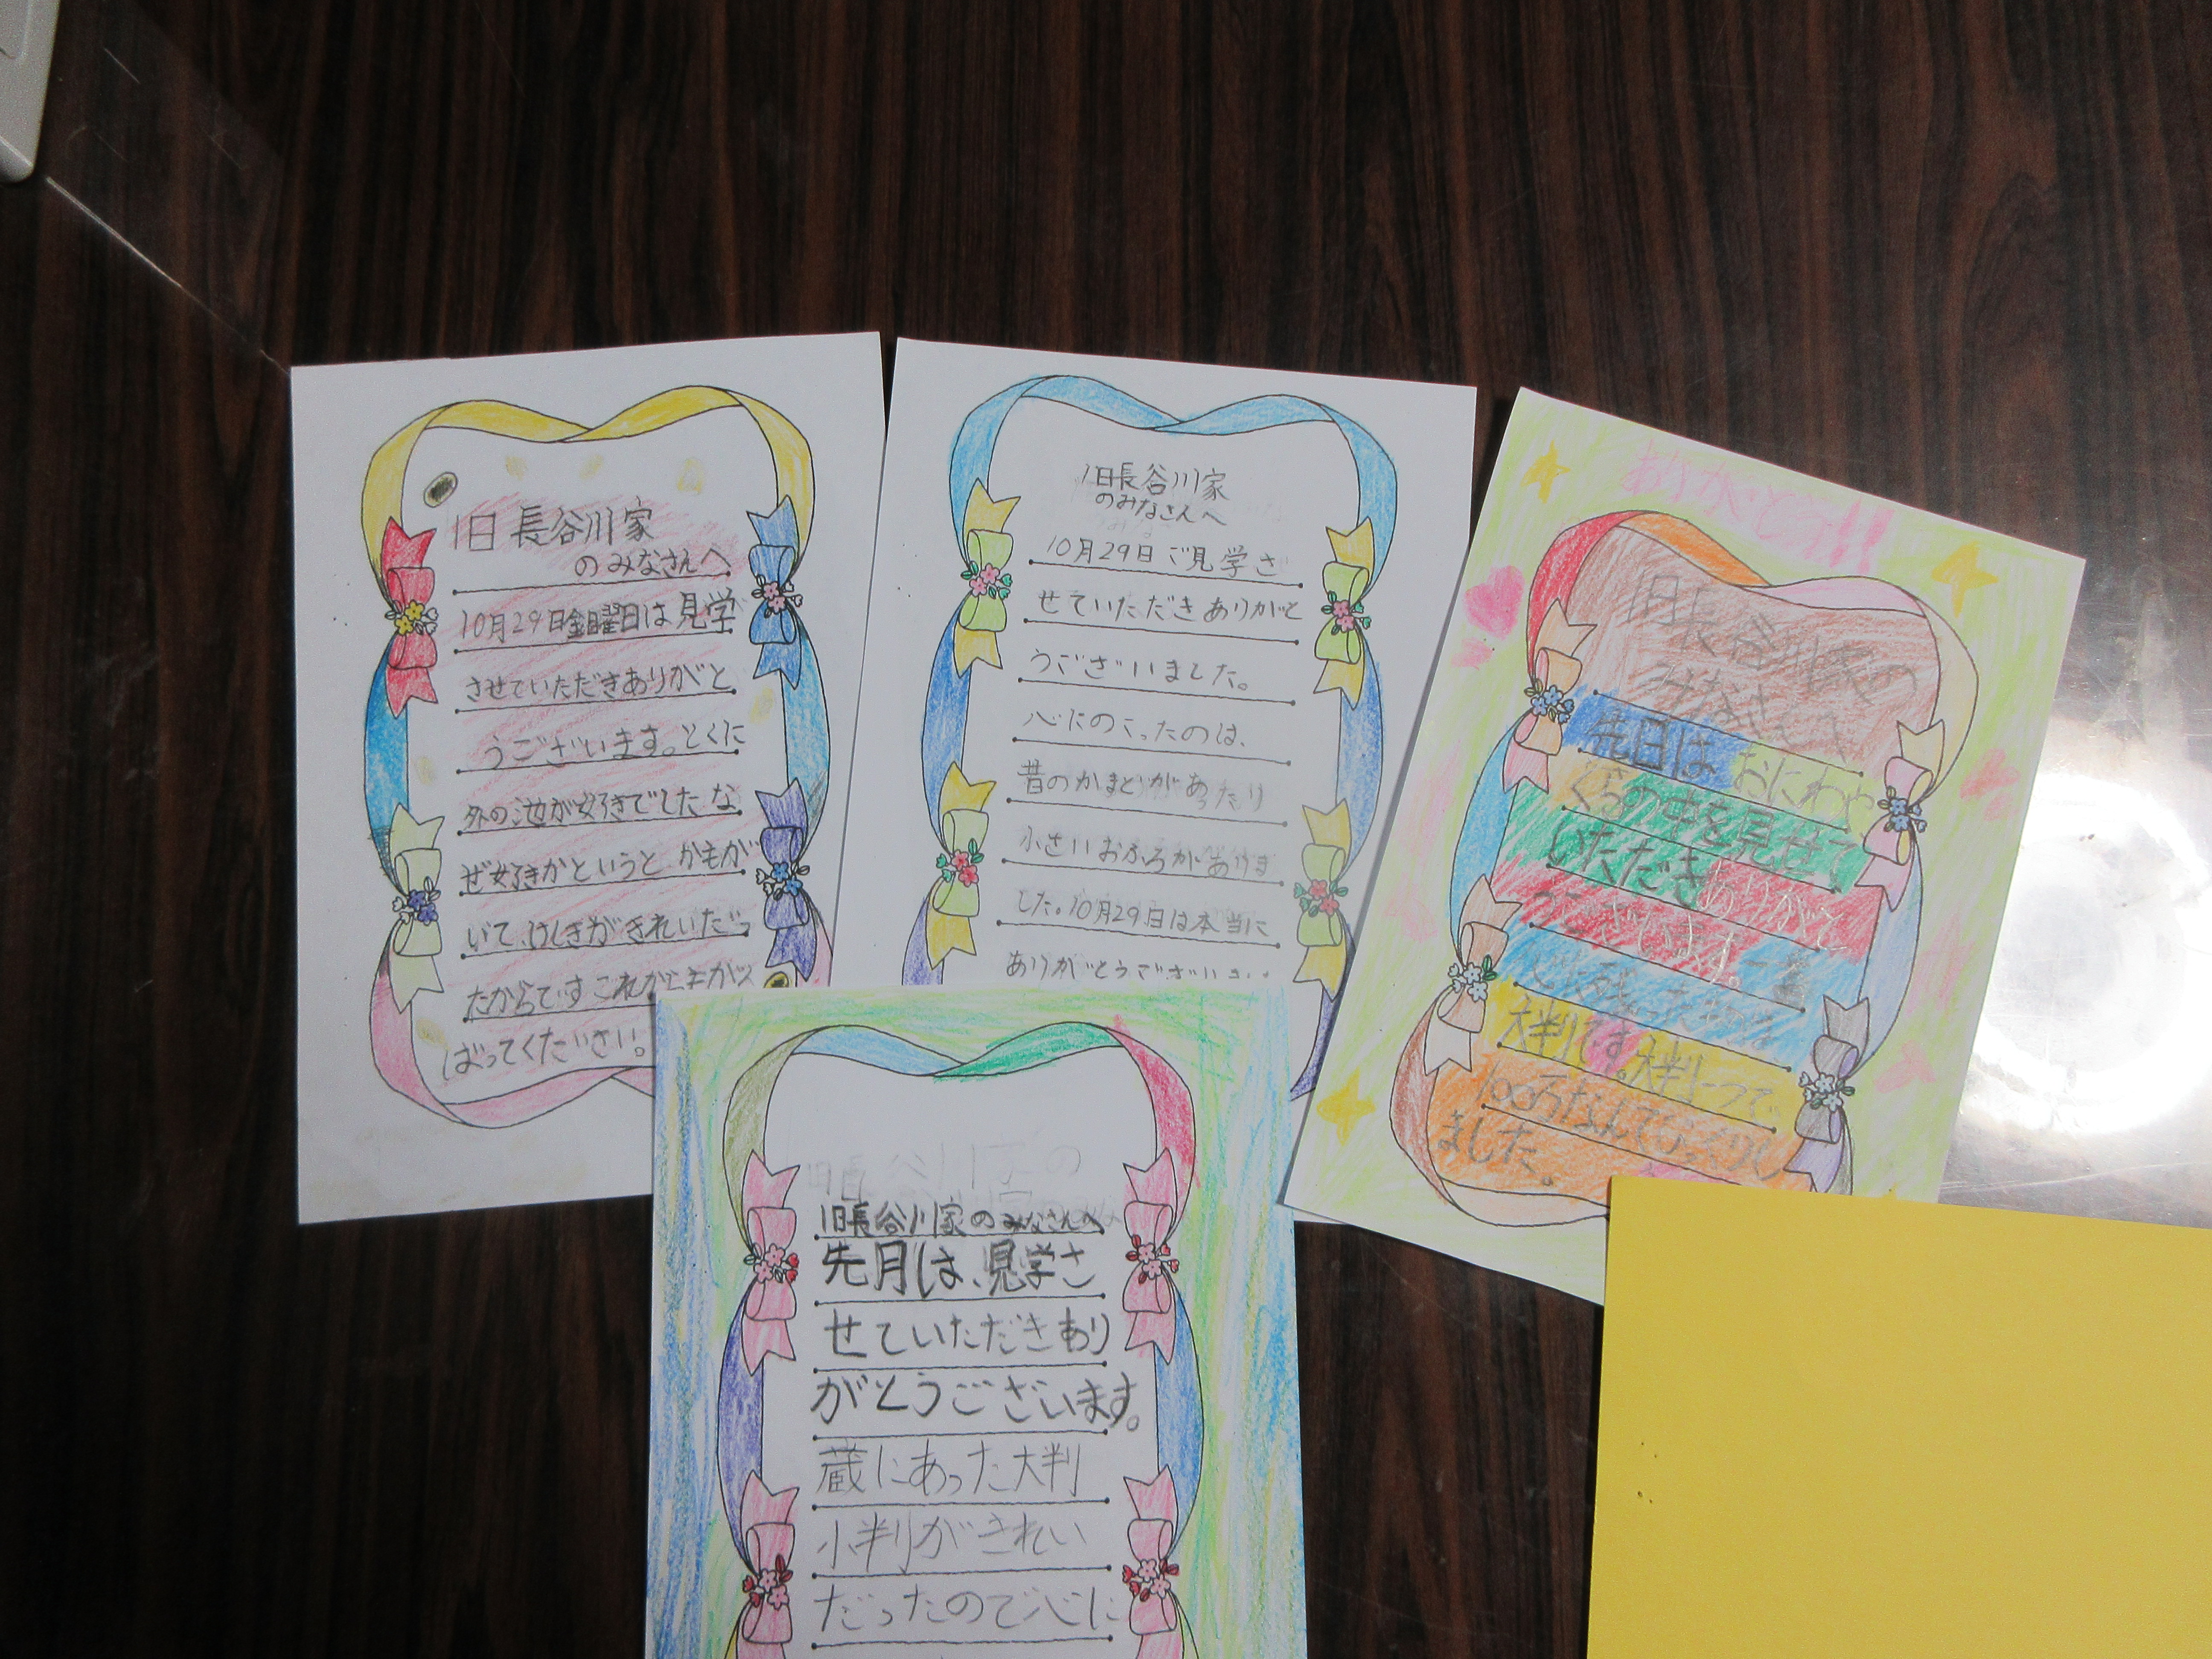 旧長谷川家
のみなさんへ
10月29日金曜日は見学
させていただきありがと
うございます。とくに
外の池が好きでした な
ぜ好きかというと かもが
いて、けしきがきれいだっ
たからです これからもがん
ばってください。
旧長谷川家
のみなさんへ
10月29日ご見学さ
せていただきありがと
うございました。
心にのこったのは、
昔のかまどがあったり
小さいおふろがありま
した。10月29日は本当に
ありがとうござい
ありがとう!!
旧長谷川家の
みなさんへ
先日はおにわや
くらの中を見せて
いただきありがと
うございます。一番
心に残ったのは
大判です。大判一つで
100万なんてびっくりし
ました。
旧長谷川家のみなさんへ
先月は、見学さ
せていただきあり
がとうございます。
蔵にあった大判
小判がきれい
だったので心に